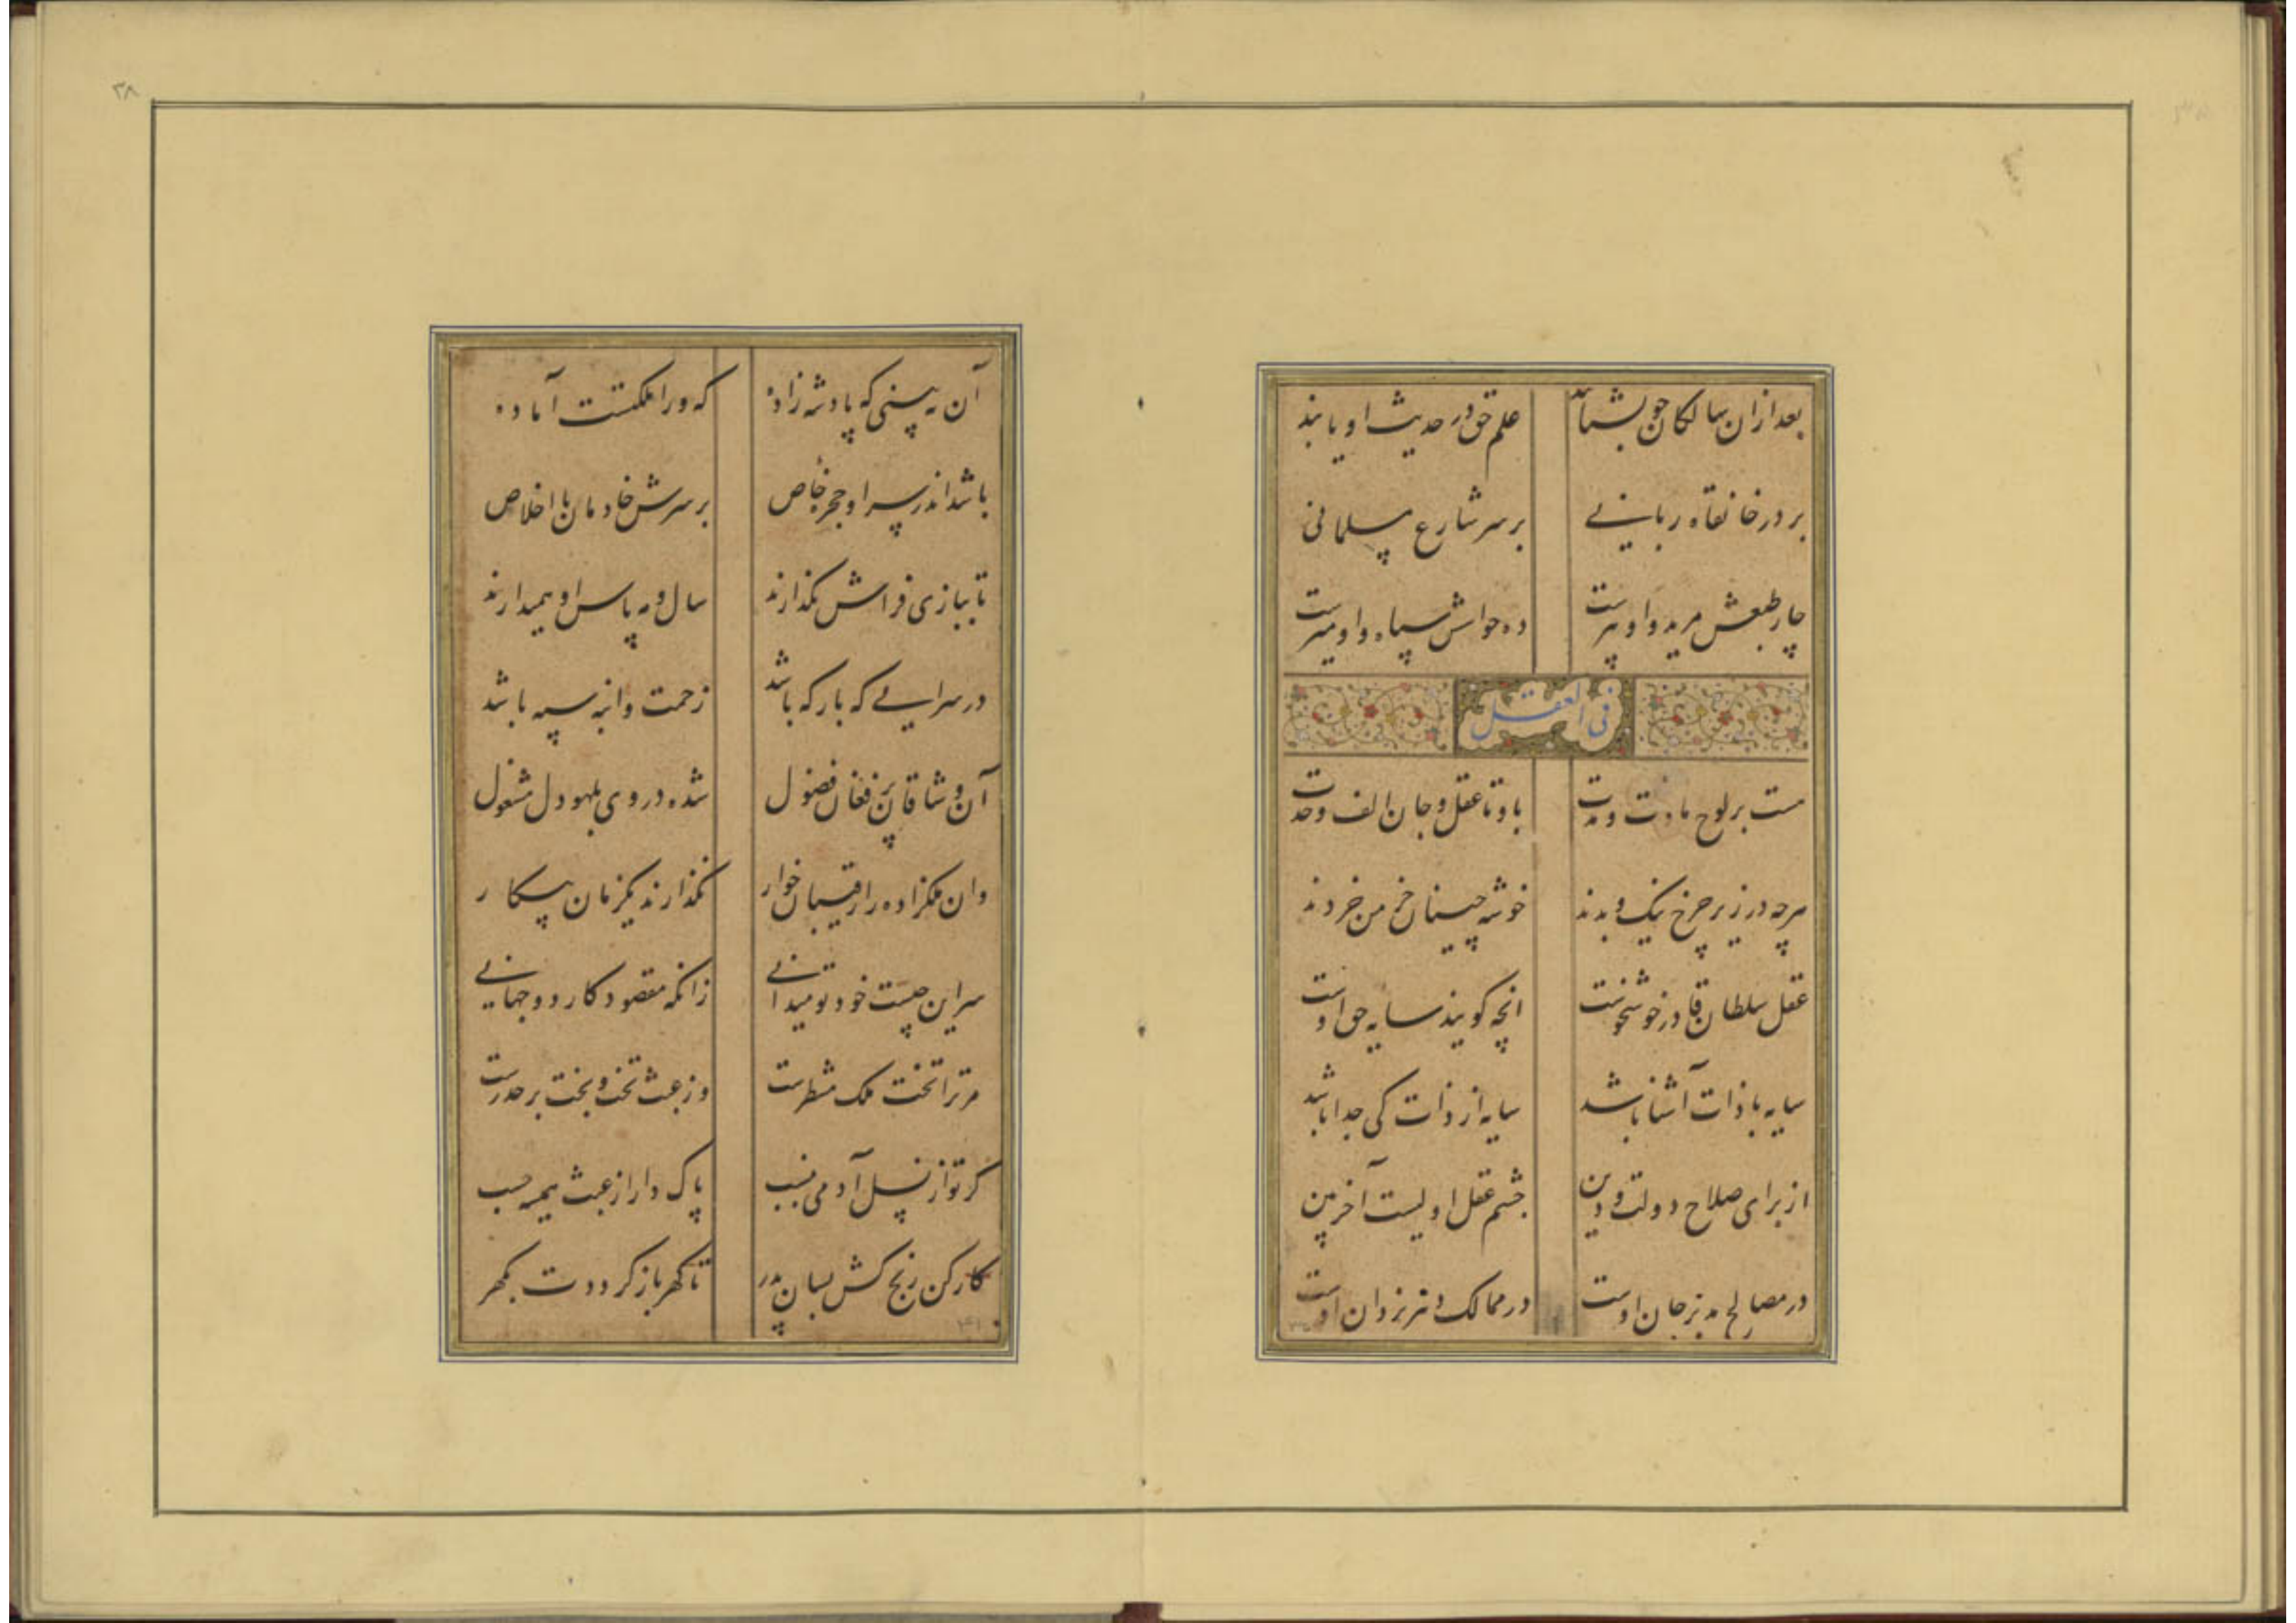 بعد از ان سالکان چو بشتابند علم حق در حدیث او یابند
بر در خانقاه ربانی بر سر شارع مسلمانی
چار طبعش مرید و او پیرست ده حواسش سپاه و او میرست
فی العقل
هست بر لوح مادت و مدت با و تا عقل و جان الف وحدت
هرچه در زیر چرخ نیک و بدند خوشه چینان خرمن خردند
عقل سلطان قادر خوشخوست انچه گویند سایه حق اوست
سایه با ذات آشنا باشد سایه از ذات کی جدا باشد
از برای صلاح دولت و دین چشم عقل اولیست آخربین
در مصالح مدبر جان اوست در ممالک دبیر یزدان اوست
آن نه بینی که پادشه زاده که ورا ملکتست آماده
باشد اندر سرا و حجره خاص بر سرش خادمان با اخلاص
تا ببازی فراش نگذارند سال و مه پاس او همیدارند
در سرایی که بارگه باشد زحمت و انبه سپه باشد
آن وشاقان پر فغان فضول شده در وی بلهو دل مشغول
وان ملکزاده را رقیبان خوار نگذارند یکزمان بیکار
سر این چیست خود تو میدانی زانکه مقصود کار دو جهانی
مر ترا تخت ملک منتظرست وز عبث تخت و بخت بر حذرست
گر تو از نسل آدمی بنسب پاک دار از عبث همیشه حسب
کار کن رنج کش بسان پدر تا گهر باز گرددت بگهر
۳۸